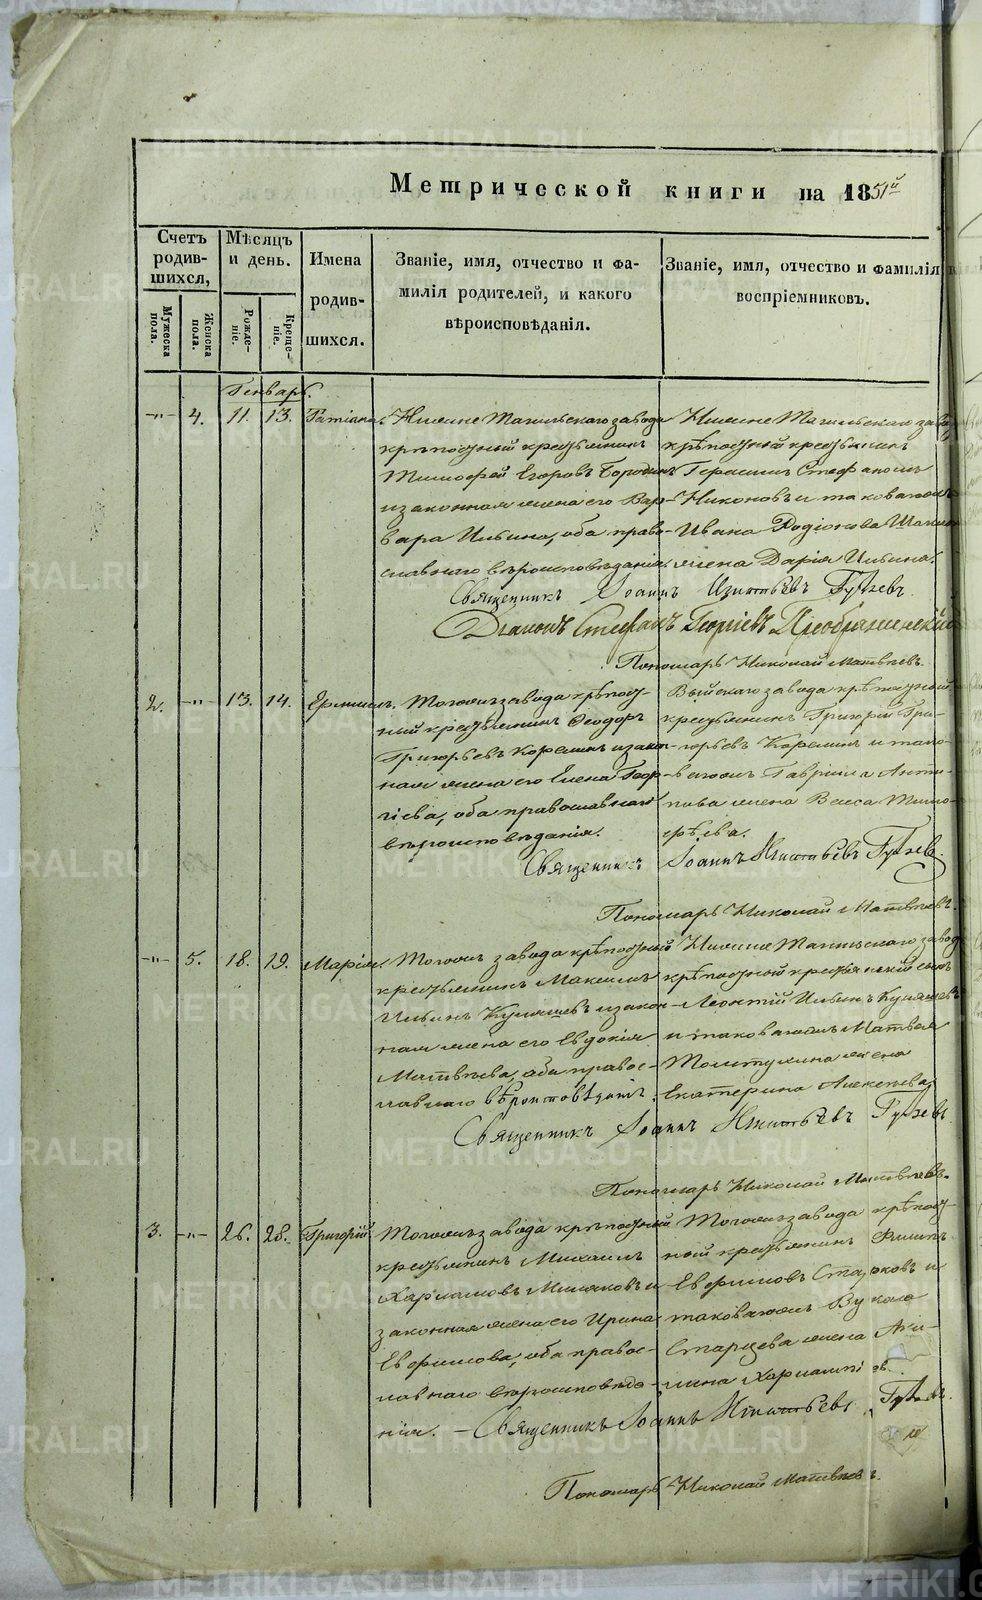 Метрической книги на 1851й
Счетъ родившихся,
Мѣсяцъ и день.
Имена родившихся.
Званіе, имя, отчество и фамилія родителей, и какого вѣроисповѣданія.
Званіе, имя, отчество и фамилія воспріемниковъ.
Мужеска пола.
Женска пола.
Рожденіе.
Крещеніе.
Генварь.
-„- 4. 11. 13. Татіана.
Нижне Тагильскаго завода
крѣпостный крестьянинъ
Тимофей Егоровъ Бородинъ
и законная жена его Вар-
вара Ильина, оба право-
славнаго вѣроисповѣданія.
Нижне Тагильскаго заво
крѣпостной крестьянинъ
Герасимъ Стефановъ
Никоновъ и таковагожъ
Ивана Родіонова
жена Дарія Ильина.
Священникъ Іоаннъ Игнатьевъ
Діаконъ Стефанъ Георгіевъ Преображенскій
Пономарь Николай Матвѣевъ.
2. -„- 13. 14. Ермилъ.
Тогожъ завода крѣпост-
ный крестьянинъ Ѳеодоръ
Григорьевъ Корелинъ и закон-
ная жена его Елена Геор-
гіева, оба православнаго
вѣроисповѣданія.
Выйскаго завода крѣпостный
крестьянинъ Григорій Гри-
горьевъ Карелинъ и тако-
вагожъ Гавріила Анти-
пова жена Васса Тимо-
фѣева.
Священникъ Іоаннъ Игнатьевъ
Пономарь Николай Матвѣевъ.
-„- 5. 18. 19. Марія.
Тогожъ завода крѣпостный
крестьянинъ Максимъ
Ильинъ Куляшевъ и закон-
ная жена его Евдокія
Матвѣева, оба правос-
лавнаго вѣроисповѣданія.
Нижне Тагильскаго завода
крѣпостной крестьянскій сынъ
Леонтій Ильинъ Куляшевъ
и таковагожъ Матвея
жена
Екатерина Алексѣева.
Священникъ Іоаннъ Игнатьевъ
Пономарь Николай Матвѣевъ.
3. -„- 26. 28. Григорій.
Тогожъ завода крѣпостный
крестьянинъ Михаилъ
Харламовъ и
законная жена его Ирина
Евфимова, оба правос-
лавнаго вѣроисповѣда-
нія.
Тогожъ завода крѣпост-
ный крестьянинъ Филипъ
Евфимовъ и
таковагожъ Вукола
Старцева жена Аки-
лина
Священникъ Іоаннъ Игнатьевъ
Пономарь Николай Матвѣевъ.
METRIKI.GASO-URAL.RU